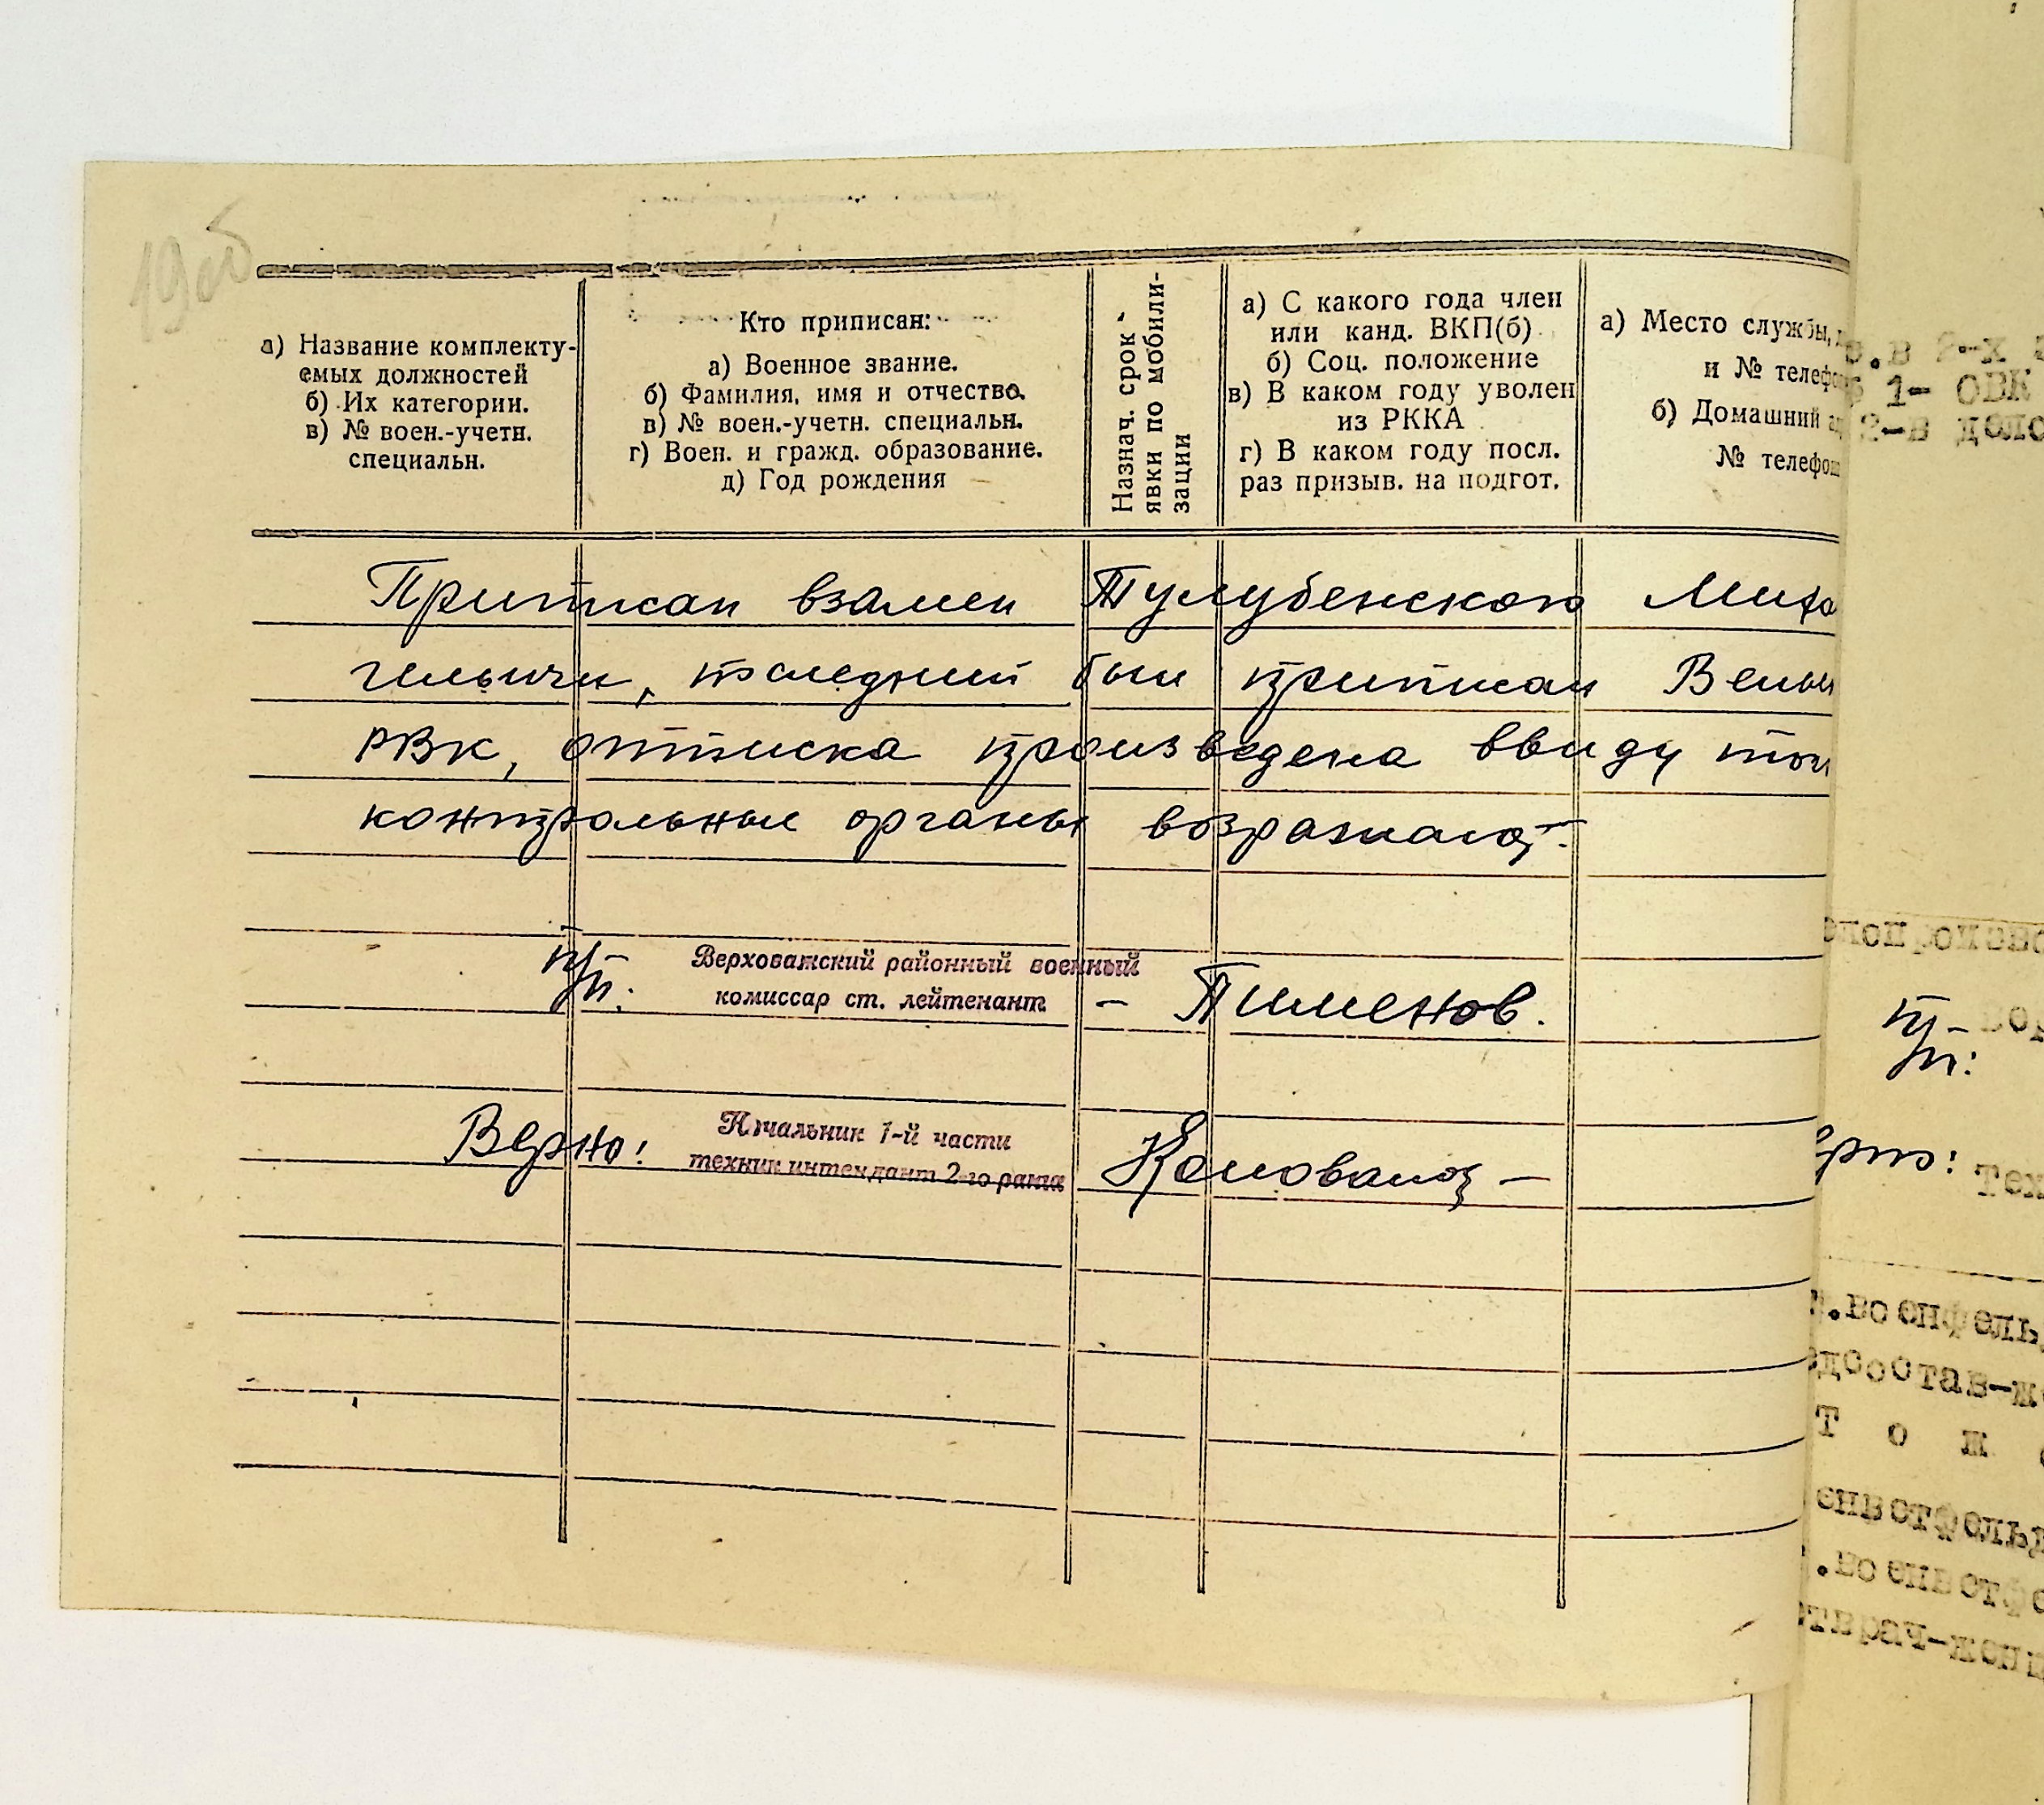 19об
а) Название комплекту-
емых должностей
б) Их категории.
в) № воен.-учетн.
специальн.
Кто приписан:
а) Военное звание.
б) Фамилия, имя и отчество.
в) № воен.-учетн. специальн.
г) Воен. и гражд. образование.
д) Год рождения
Назнач. срок
явки по мобили-
зации
а) С какого года член
или канд. ВКП(б)
б) Соц. положение
в) В каком году уволен
из РККА
г) В каком году посл.
раз призыв. на подгот.
а) Место службы,
и № телефо
б) Домашний
№ телефон
Приписан взамен Тулубенского Миха
последний был приписан Вельск
РВК, отписка произведена ввиду того
контрольные органы возражают.
п/п. Верховажский районный военный
комиссар ст. лейтенант – Пименов.
Верно! Начальник 1-й части
техник интендант 2-го ранга
в 2-х
1- ОВК
2-в дело
п/п:
ерно: тех
.военфель
т о ж